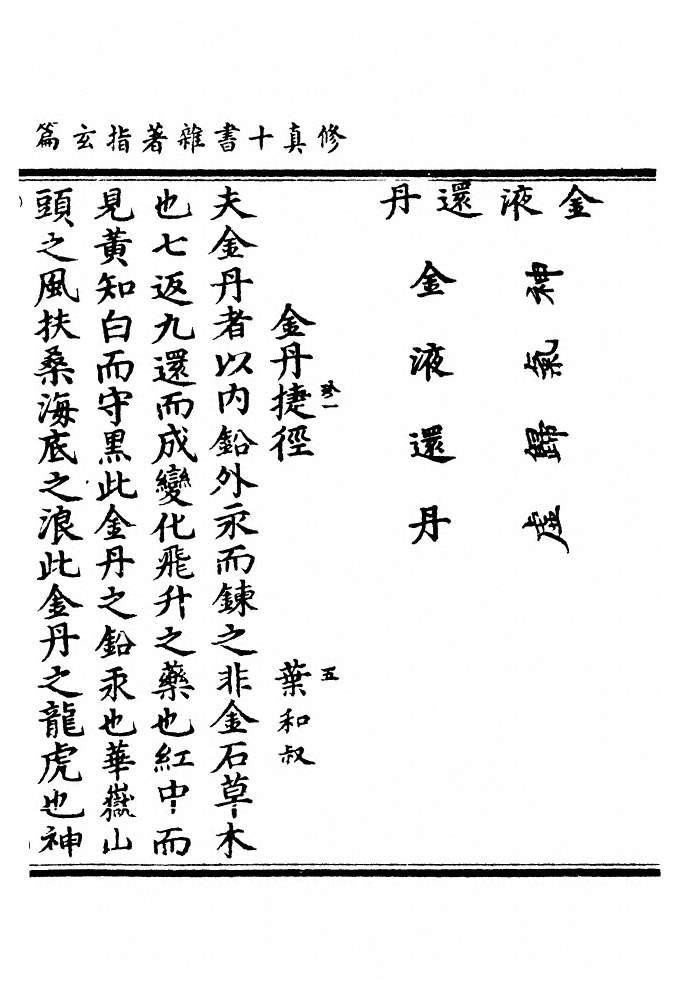 修真十書雜著指玄篇
金液還丹
神氣歸虛
金液還丹
珍一
五
金丹捷徑
葉和叔
夫金丹者以内鉛外汞而鍊之非金石草木
也七返九還而成變化飛升之藥也紅中而
見黃知白而守黑此金丹之鉛汞也華嶽山
頭之風扶桑海底之浪此金丹之龍虎也神